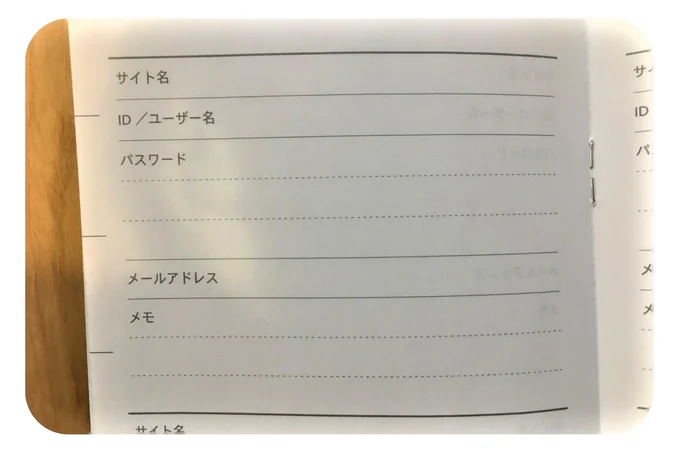 サイト名
ID／ユーザー名
パスワード
メールアドレス
メモ
サイト名
サイ
ID
パ
メ
メ